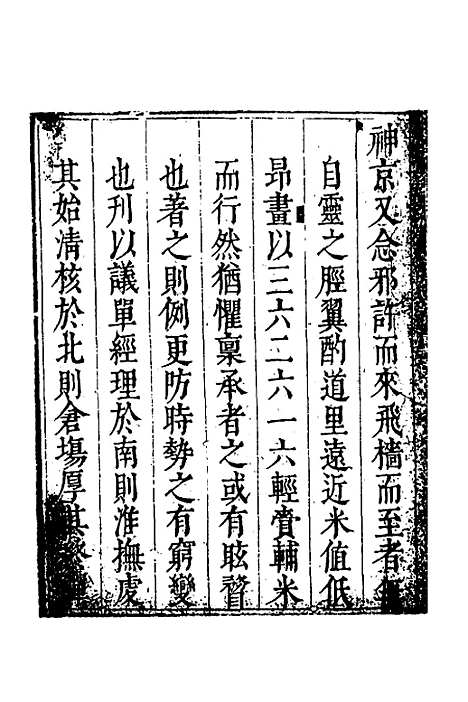 神京又念邪許而來飛檣而至者
自靈之脛翼酌道里遠近米值低
昂畫以三六二六一六輕賫輔米
而行然猶懼稟承者之或有眩瞀
也著之則例更防時勢之有窮變
也刊以議單經理於南則淮撫處
其始清核於北則倉場厚其